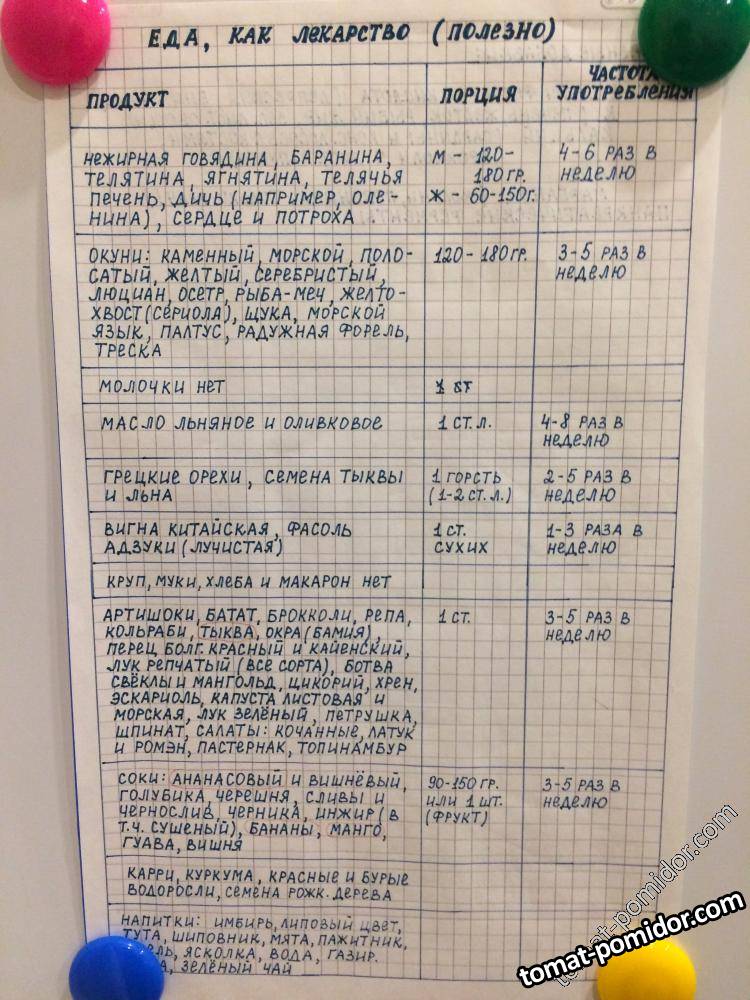 ЕДА, КАК ЛЕКАРСТВО (ПОЛЕЗНО)
ПРОДУКТ
ПОРЦИЯ
ЧАСТОТА
УПОТРЕБЛЕНИЯ
НЕЖИРНАЯ ГОВЯДИНА, БАРАНИНА,
ТЕЛЯТИНА, ЯГНЯТИНА, ТЕЛЯЧЬЯ
ПЕЧЕНЬ, ДИЧЬ (НАПРИМЕР, ОЛЕ-
НИНА), СЕРДЦЕ И ПОТРОХА
М - 120-
180 ГР.
Ж - 60-150Г.
4-6 РАЗ В
НЕДЕЛЮ
ОКУНИ: КАМЕННЫЙ, МОРСКОЙ, ПОЛО-
САТЫЙ, ЖЕЛТЫЙ, СЕРЕБРИСТЫЙ,
ЛЮЦИАН, ОСЕТР, РЫБА-МЕЧ, ЖЕЛТО-
ХВОСТ (СЕРИОЛА), ЩУКА, МОРСКОЙ
ЯЗЫК, ПАЛТУС, РАДУЖНАЯ ФОРЕЛЬ,
ТРЕСКА
120-180 ГР.
3-5 РАЗ В
НЕДЕЛЮ
МОЛОЧКИ НЕТ
МАСЛО ЛЬНЯНОЕ И ОЛИВКОВОЕ
1 СТ. Л.
4-8 РАЗ В
НЕДЕЛЮ
ГРЕЦКИЕ ОРЕХИ, СЕМЕНА ТЫКВЫ
И ЛЬНА
1 ГОРСТЬ
(1-2 СТ. Л.)
2-5 РАЗ В
НЕДЕЛЮ
ВИГНА КИТАЙСКАЯ, ФАСОЛЬ
АДЗУКИ (ЛУЧИСТАЯ)
1 СТ.
СУХИХ
1-3 РАЗА В
НЕДЕЛЮ
КРУП, МУКИ, ХЛЕБА И МАКАРОН НЕТ
АРТИШОКИ, БАТАТ, БРОККОЛИ, РЕПА,
КОЛЬРАБИ, ТЫКВА, ОКРА (БАМИЯ),
ПЕРЕЦ БОЛГ. КРАСНЫЙ И КАЙЕНСКИЙ,
ЛУК РЕПЧАТЫЙ (ВСЕ СОРТА), БОТВА
СВЁКЛЫ И МАНГОЛЬД, ЦИКОРИЙ, ХРЕН,
ЭСКАРИОЛЬ, КАПУСТА ЛИСТОВАЯ И
МОРСКАЯ, ЛУК ЗЕЛЁНЫЙ, ПЕТРУШКА,
ШПИНАТ, САЛАТЫ: КОЧАННЫЕ, ЛАТУК
И РОМЭН, ПАСТЕРНАК, ТОПИНАМБУР
1 СТ.
3-5 РАЗ В
НЕДЕЛЮ
СОКИ: АНАНАСОВЫЙ И ВИШНЁВЫЙ,
ГОЛУБИКА, ЧЕРЕШНЯ, СЛИВЫ И
ЧЕРНОСЛИВ, ЧЕРНИКА, ИНЖИР (В
Т.Ч. СУШЕНЫЙ), БАНАНЫ, МАНГО,
ГУАВА, ВИШНЯ
90-150 ГР.
ИЛИ 1 ШТ.
(ФРУКТ)
3-5 РАЗ В
НЕДЕЛЮ
КАРРИ, КУРКУМА, КРАСНЫЕ И БУРЫЕ
ВОДОРОСЛИ, СЕМЕНА РОЖК. ДЕРЕВА
НАПИТКИ: ИМБИРЬ, ЛИПОВЫЙ ЦВЕТ,
ТУТА, ШИПОВНИК, МЯТА, ПАЖИТНИК,
ЯСКОЛКА, ВОДА, ГАЗИР.
ЗЕЛЁНЫЙ ЧАЙ
tomat-pomidor.com
tomat-pomidor.com